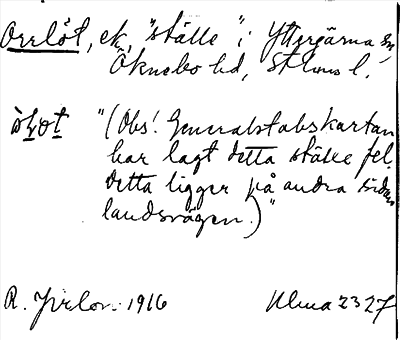 Orrlöt, ek, "ställe" i Ytterjärna sn,
Öknebo hd, St:hlms l.
"(Obs! Generalstabskartan
har lagt detta ställe fel.
Detta ligger på andra sidan
landsvägen.)"
R. 1916 Ulma 2327